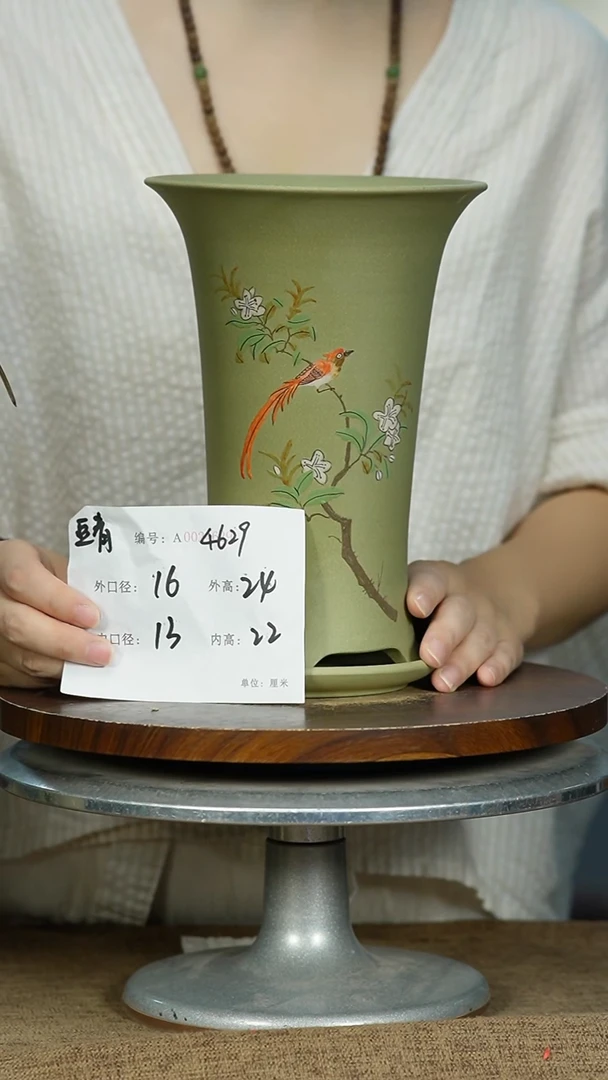 豆青 编号：A004629
外口径：16 外高：24
内口径：13 内高：22
单位：厘米